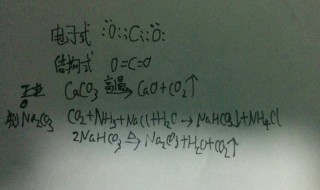 电子式 :Ö::C::Ö:
结构式 O=C=O
工业 CaCO₃ 高温→ CaO+CO₂↑
制Na₂CO₃ CO₂+NH₃+NaCl+H₂O → NaHCO₃↓+NH₄Cl
2NaHCO₃ △→ Na₂CO₃+H₂O+CO₂↑